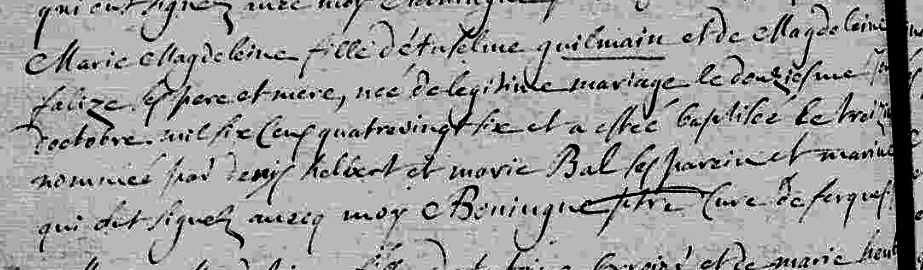 qui ont signez avec moy
Marie Magdeleine fille d'Anseline quilmain et de Magdeleine
falize ses pere et mere, neé de legitime mariage le deuziesme
d'octobre mil six cens quatrevingt six et a esteé baptiseé le troi
nommeé par denis helbert et marie Bal ses parein et marine
qui ont signez avecq moy Boningue ptre Cure de ferques
et de marie